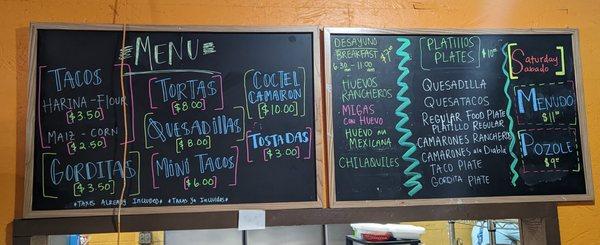 MENU
TACOS
HARINA-FLOUR
$3.50
MAIZ - CORN
$2.50
GORDITAS
$3.50
TORTAS
$8.00
QUESADILLAS
$8.00
MINI TACOS
$6.00
COCTEL
CAMARON
$10.00
TOSTADAS
$3.00
*TAXES ALREADY INCLUDED*
*TAXES YA INCLUIDOS*
DESAYUNO
BREAKFAST
6:30 AM - 11:00
HUEVOS
RANCHEROS
MIGAS
CON HUEVO
HUEVO ala
MEXICANA
CHILAQUILES
PLATILLOS
PLATES
QUESADILLA
QUESATACOS
REGULAR FOOD PLATE
PLATILLO REGULAR
CAMARONES RANCHERO
CAMARONES ala Diabla
TACO PLATE
GORDITA PLATE
SATURDAY
SABADO
MENUDO
POZOLE